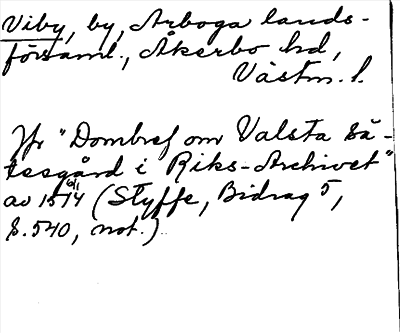 Viby, by, Arboga lands-
församl., Åkerbo hd,
Västm. l.
Jfr "Dombref om Valsta sä-
tesgård i Riks-Archivet"
av 1514 (Styffe, Bidrag 5,
s. 540, not.)